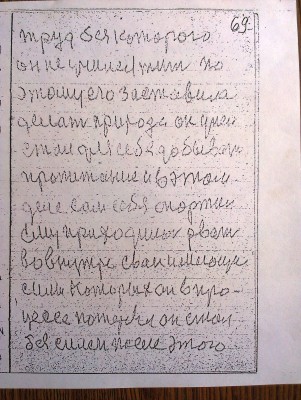 69
труд без которого
он не умеет жит по
этому его заставила
делат природа он умел
стал для себя добыват
пропитание и в этом
деле сам себя
ему приходилос рват
во внутрь своими
силы которых он в про-
цессе потерял он стал
без силен после этого